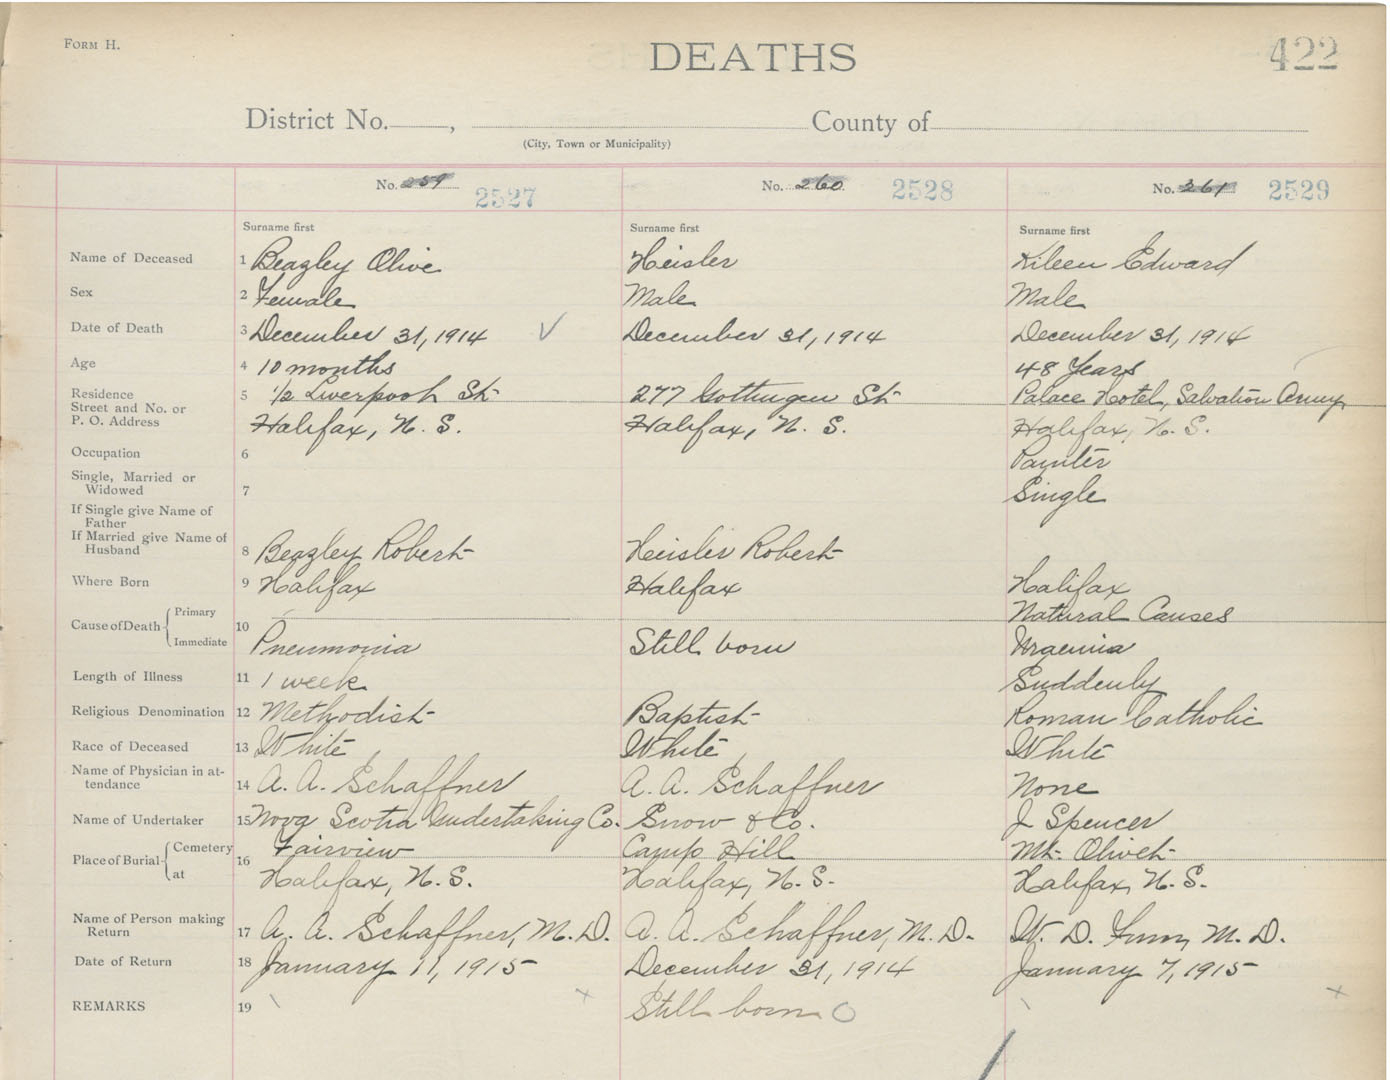 FORM H.
DEATHS
422
District No. , County of
(City, Town or Municipality)
No. 259 2527 No. 260 2528 No. 261 2529
Surname first Surname first Surname first
Name of Deceased 1 Beazley Olive Heisler Kileen Edward
Sex 2 Female Male Male
Date of Death 3 December 31, 1914 December 31, 1914 December 31, 1914
Age 4 10 months 48 Years
Residence
Street and No. or 5 1/2 Liverpool St 277 Gottingen St Palace Hotel, Salvation Army
P. O. Address Halifax, N. S. Halifax, N. S. Halifax, N. S.
Occupation 6 Painter
Single, Married or
Widowed 7 Single
If Single give Name of
Father
If Married give Name of
Husband 8 Beazley Robert Heisler Robert
Where Born 9 Halifax Halifax Halifax
Cause of Death Primary 10 Natural Causes
Immediate Pneumonia Still born Uraemia
Length of Illness 11 1 week Suddenly
Religious Denomination 12 Methodist Baptist Roman Catholic
Race of Deceased 13 White White White
Name of Physician in at-
tendance 14 A. A. Schaffner A. A. Schaffner None
Name of Undertaker 15 Nova Scotia Undertaking Co. Snow & Co. J Spencer
Place of Burial Cemetery 16 Fairview Camp Hill Mt. Olivet
at Halifax, N. S. Halifax, N. S. Halifax, N. S.
Name of Person making
Return 17 A. A. Schaffner, M. D. A. A. Schaffner, M. D. W. D. M. D.
Date of Return 18 January 11, 1915 December 31, 1914 January 7, 1915
REMARKS 19 Still born